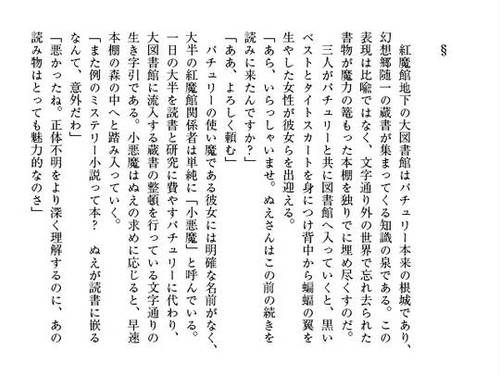 §
紅魔館地下の大図書館はパチュリー本来の根城であり、
幻想郷随一の蔵書が集まってくる知識の泉である。この
表現は比喩ではなく、文字通り外の世界で忘れ去られた
書物が魔力の篭もった本棚を独りでに埋め尽くすのだ。
三人がパチュリーと共に図書館へ入っていくと、黒い
ベストとタイトスカートを身につけ背中から蝙蝠の翼を
生やした女性が彼女らを出迎える。
「あら、いらっしゃいませ。ぬえさんはこの前の続きを
読みに来たんですか？」
「ああ、よろしく頼む」
パチュリーの使い魔である彼女には明確な名前がなく、
大半の紅魔館関係者は単純に「小悪魔」と呼んでいる。
一日の大半を読書と研究に費やすパチュリーに代わり、
大図書館に流入する蔵書の整頓を行っている文字通りの
生き字引である。小悪魔はぬえの求めに応じると、早速
本棚の森の中へと踏み入っていく。
「また例のミステリー小説って本？　ぬえが読書に嵌る
なんて、意外だわ」
「悪かったね。正体不明をより深く理解するのに、あの
読み物はとっても魅力的なのさ」